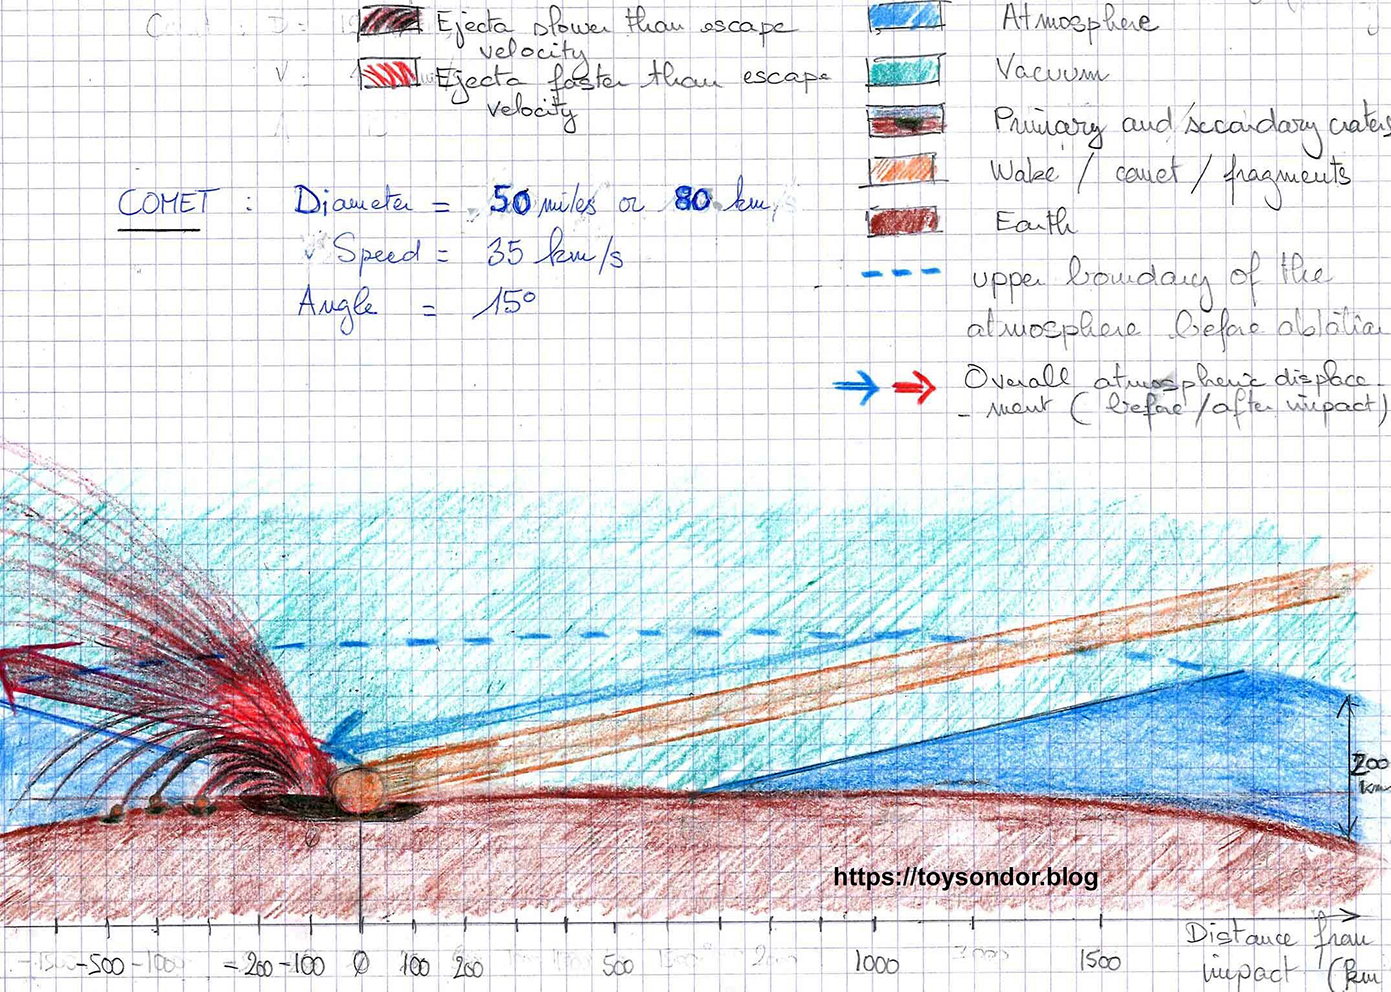 Ejecta slower than escape
velocity
Ejecta faster than escape
velocity
Atmosphere
Vacuum
Primary and secondary craters
Wake / comet / fragments
Earth
upper boundary of the
atmosphere before ablation
Overall atmospheric displace-
-ment (before/after impact)
COMET : Diameter = 50 miles or 80 km
Speed = 35 km/s
Angle = 15°
200
km
https://toysondor.blog
-500 -200 -100 0 100 200 500 1000 1500
Distance from
impact (km